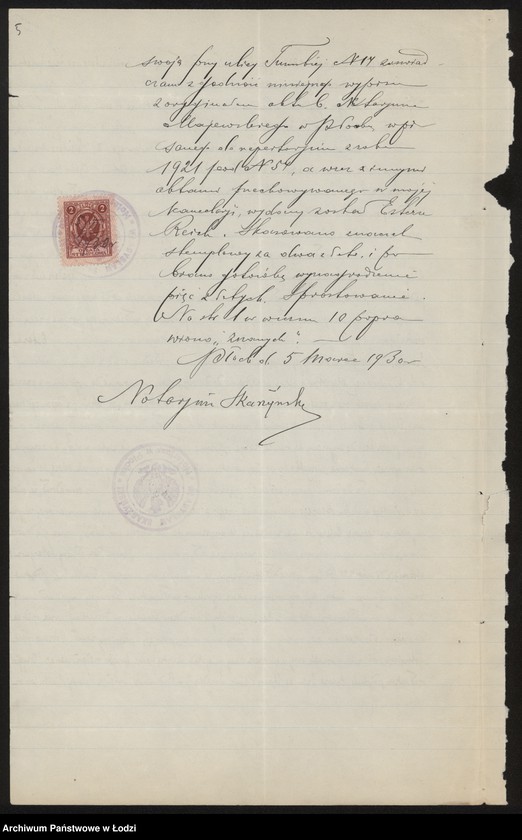 5
swoją przy ulicy Tumskiej N 14 zaświad-
czam zgodność niniejszego wypisu
z oryginałem aktu b. Notarjusza
Majewskiego w Płocku, wpi-
sanego do repertorjum z roku
1921 pod N 5, a wraz z innymi
aktami przechowywanego w mojej
kancelarji, wydany został Esterze
Reich. Skasowano znaczek
stemplowy za dwa złote i po-
brano gotówką wynagrodzenie
pięć złotych. Sprostowanie.
Na str. 1 w wierszu 10 popra-
wiono „żonatych". —
Płock d. 5 Marca 1930 r.
Notarjusz
2
2
Archiwum Państwowe w Łodzi